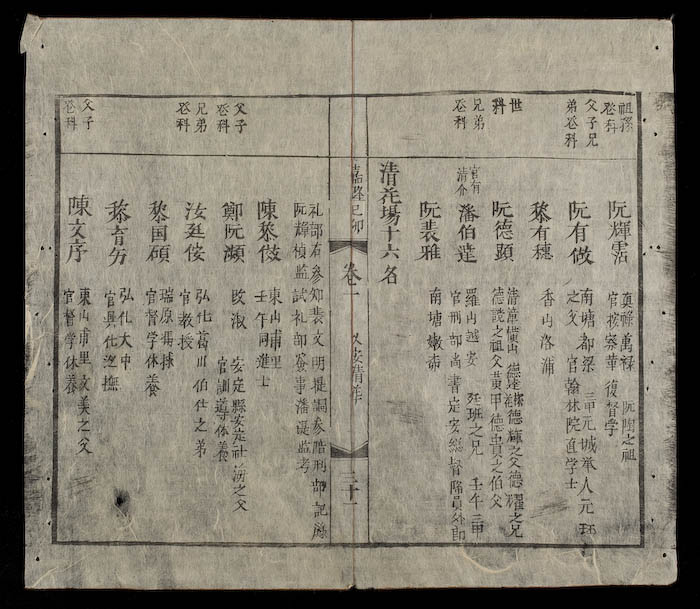 祖孫
登科
阮輝𩃳
真祿萬祿 阮閱之祖
官按察革復督学
父子兄
弟登科
阮有做
南塘都梁 三甲元城举人元环
之父 官翰林院直学士
黎有穗
香山洛浦
世
科
阮德顕
德輝之父德耀之兄
德誼之祖父黄甲德貴之伯父
兄弟
登科
官有
清介
潘伯達
羅山越安 廷班之兄 壬午三甲
官刑部尚書定安縂督降員外郎
阮裴雅
南塘
清花場十六名
嘉隆己卯
卷一
乂安清花
三十一
礼部右参知裴文 明堤調参陪刑部記錄
阮輝楨監試礼部簽事潘 監考
陳黎傚
東山甫里
壬午同進士
父子
登科
鄭阮灝
改淑 安定縣安定社 之父
官訓導休養
兄弟
登科
汝廷侒
弘化 川伯仕之弟
官教授
黎国碩
瑞原
官督学休養
黎育
弘化大中
官興化巡撫
父子
登科
陳文序
東山甫里文美之父
官督学休養